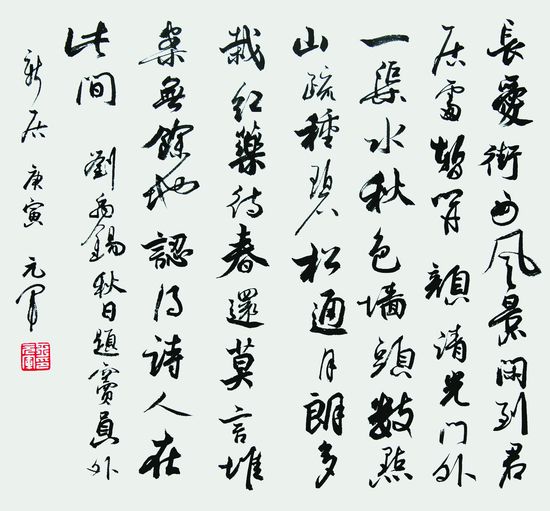 長愛街西風景閑到君
居處暫開顏清光門外
一渠水秋色墻頭數點
山疏種碧松通月朗多
栽紅藥待春還莫言堆
案無餘地認得詩人在
此間 劉禹錫秋日題竇員外
新居 庚寅 元軍